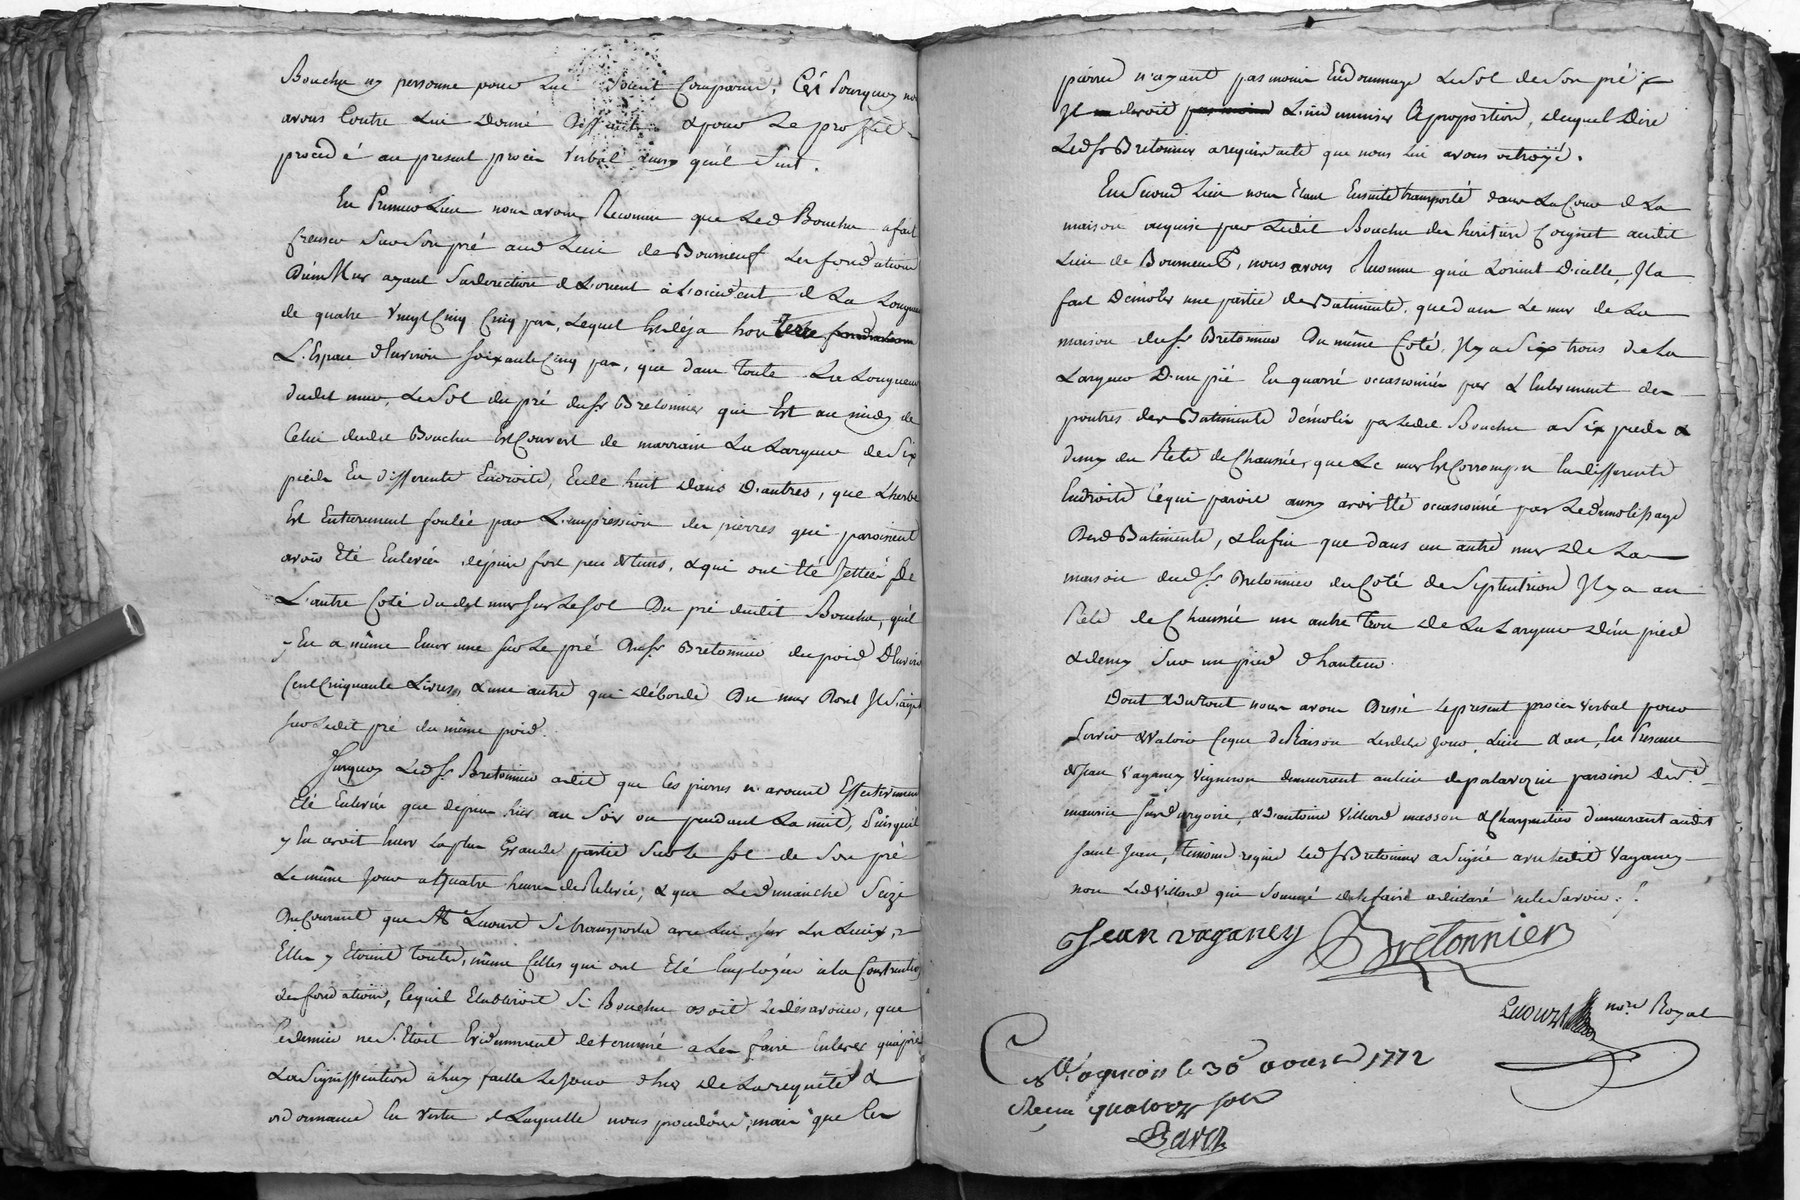 Bouchu ny personne pour Luy Soient Comparu, C'est Pourquoy nous
avons Contre Lui donné deffaut & pour Le proffit
procedé au present procès Verbal ainsy qu'il Suit.
En Premier Lieu nous avons Reconnu que Led Bouchu a fait
Creuser Sur Son pré aud Lieu de Bourneuf Les fondations
D'un Mur ayant Sa direction de L'orient à L'occident de La Longueur
de quatre Vingt Cinq pas, Lequel Est déja hors terre fondations
L'Espace d'Environ soixante Cinq pas, que dans toute La Longueur
dudit mur, Le Sol du pré dud Sr Bretonnier qui Est au midy de
Celui dudit Bouchu Est Couvert de marrain La Largeur de Six
pieds En differents Endroits, Et de huit dans D'autres, que L'herbe
Est Entierement foulée par L'impression des pierres qui paroissent
avoir Eté Enlevées depuis fort peu de tems, & qui ont Eté Jettées De
L'autre Coté dudit mur Sur Le Sol Du pré dudit Bouchu, qu'il
y En a même Encor une Sur Le pré dud Sr Bretonnier du poid D'Environ
Cent Cinquante Livres, & une autre qui déborde Du mur
Sur Ledit pré du même poid.
Surquoy Led Sr Bretonnier a dit que Ces pierres n'avoient Effectivement
Eté Enlevées que depuis hier au Soir ou pendant La nuit, Puisqu'il
y En avoit hier La plus Grande partie Sur Le Sol de Son pré
Le même Jour a Quatre heures de Relevée; & que Le dimanche Seize
Du Courant que Me Lucourt Se transporta avec Lui Sur Les Lieux,
Elles y Etoient toutes, même Celles qui ont Eté Employées à la Construction
des fondations, Ce qu'il Etabliroit Si Bouchu osoit Le désavoüer, que
Ce dernier ne S'Etoit Evidemment determiné a Les faire Enlever qu'après
La Signiffication à luy faitte Le Jour d'hier de La requête &
ordonnance En Vertu de Laquelle nous procédons; mais que Ces
pierres n'ayant pas moins Endommagé Le Sol de Son pré
Il devoit pas moins L'indemniser à proportion, duquel Dire
Led Sr Bretonnier a requis acte que nous Lui avons octroyé.
En Second Lieu nous Etant Ensuite transporté dans La Cour de La
maison acquise par Ledit Bouchu des heritiers Coignet audit
Lieu de Bourneuf, nous avons Reconnu qu'à L'orient D'icelle, Il a
fait Démolir une partie de Batiments, que dans Le mur de La
maison dud Sr Bretonnier Du même Coté, Il y a Six trous de La
Largeur D'un pié En quarré occasionnés par L'Enlevement des
poutres des Batiments démolis par Ledit Bouchu a Six pieds &
demy du Retz de Chaussée, que Le mur Est Corrompu En differents
Endroits Ce qui paroit aussy avoir Eté occasionné par Le demolissage
Desd Batiments, & Enfin que dans un autre mur de La
maison dud Sr Bretonnier du Coté de Septentrion Il y a au
Retz de Chaussée un autre trou de La Largeur d'un pied
& demy Sur un pied d'hauteur.
Dont & Du tout nous avons Dressé Le present procès Verbal pour
Servir & Valoir Ce que de Raison Lesdits Jour, Lieu & an, En Presence
de Jean Vaganey Vigneron demeurant au Lieu de palavezin paroisse De St
maurice Sur dargoire, & D'antoine Villard masson & Charpentier demeurant audit
Saint Jean, temoins requis Led Sr Bretonnier a Signé avec Ledit Vaganey
non Led Villard qui Sommé de le faire a déclaré ne le Savoir.
Jean vaganey Bretonnier
Lucourt nore Royal
Cllé a quois le 30e aoust 1772
Reçu quatorze sols